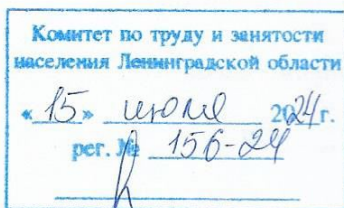 Комитет по труду и занятости
населения Ленинградской области
«15» июля 2024г.
рег. № 156-24